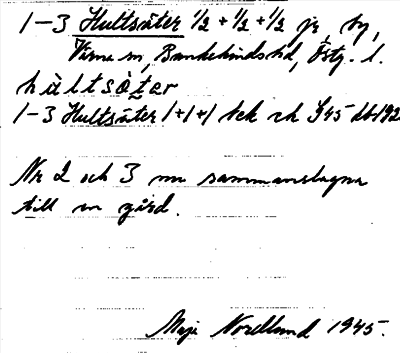 1-3 Hultsäter 1/2 + 1/2 + 1/2 jr, by,
Värna sn, Bankekinds hd, Östg. l.
hùltsǝ̀ter
1-3 Hultsäter 1+1+1 sek rh J45 db192
Nr 2 och 3 nu sammanslagna
till en gård.
Maja Nordlund 1945.